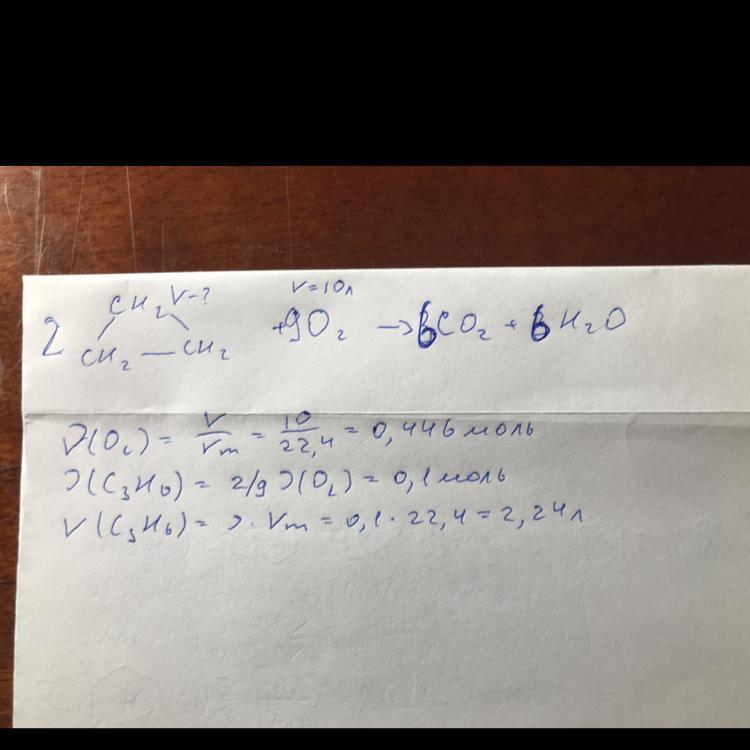 CH₂ V-? V=10л
2 CH₂ — CH₂ +9O₂ → 6CO₂ + 6H₂O
ν(O₂) = V/Vm = 10/22,4 = 0,446 моль
ν(C₃H₆) = 2/9 ν(O₂) = 0,1 моль
V(C₃H₆) = ν · Vm = 0,1 · 22,4 = 2,24л